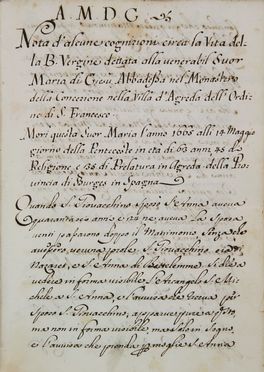 A. M. D. G.
Nota d'alcune cognizioni circa la Vita del-
la B. Vergine dettata alla venerabil Suor
Maria di Giesù Abbadessa nel Monastero
della Concezione nella Villa d'Agreda dell'Ordi-
ne di S. Francesco.
Morì questa Suor Maria l'anno 1665 alli 24 Maggio
giorno della Pentecoste in età di 63 anni 45 di
Religione, e 35 di Prelatura in Agreda della Pro-
vincia di Burges in Spagna
Quando S. Giovacchino sposò S. Anna aveva
quaranta sei anni e 24 ne aveva la Sposa
venti passarono doppo il Matrimonio senza che
avessero veruna prole S. Giovacchino era di
Nazaret, e S. Anna di Bettelemme Si diè a
vedere in forma visibile l'Arcangelo S. Mi-
chele a S. Anna, e l'avvisò che riceva per
Sposo S. Giovacchino, apparve pure a
ma non in forma visibile, ma solo in Sogno,
e l'avvisa che prenda p moglie S. Anna